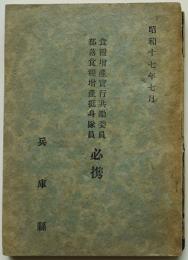 昭和十七年七月
食糧増産實行共勵委員
部落食糧増産挺身隊員
必携
兵庫縣